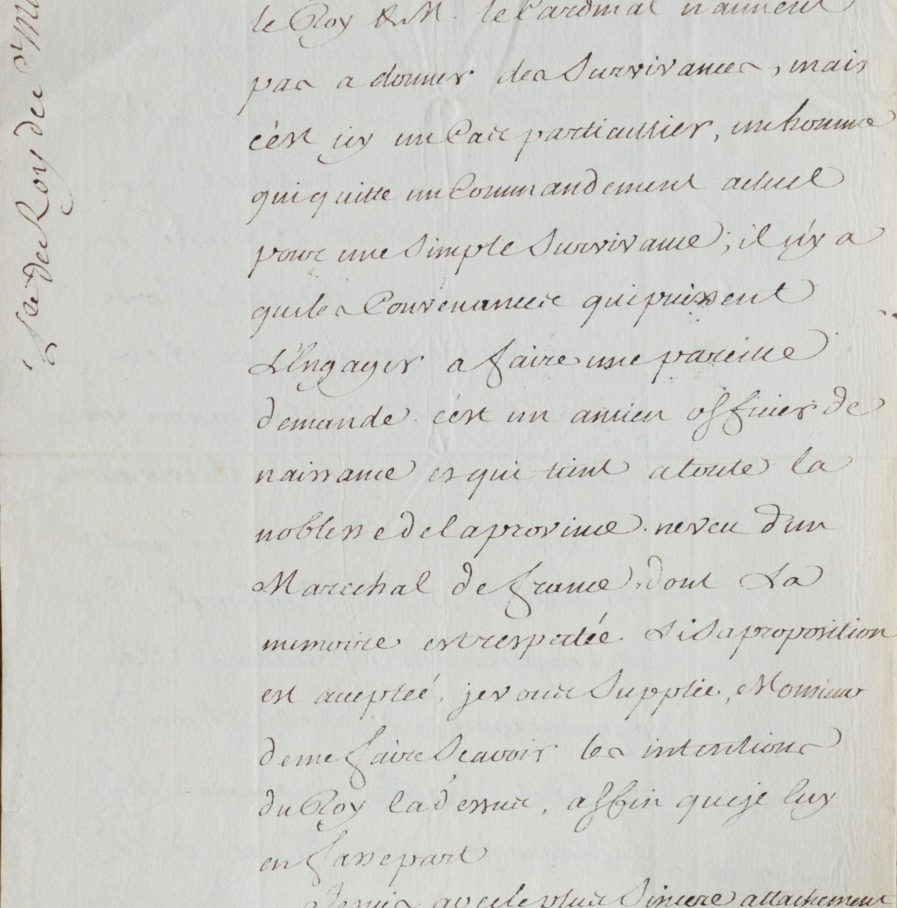 le Roy & M. le Cardinal n'aiment
pas a donner des Survivances, mais
c'est icy un Cas particullier, un homme
qui quitte un Commandement actuel
pour une Simple Survivance; il n'y a
que les Convenances qui puissent
L'Engager a faire une pareille
demande. c'est un ancien officier de
naissance et qui tient a toute la
noblesse de la province. neveu d'un
Marechal de france, dont La
memoire est respectée. Si Sa proposition
est acceptée. je vous Supplie, Monsieur
de me faire Scavoir les intentions
du Roy la dessus, affin que je luy
en fasse part
Je suis avec le plus Sincere attachement
du Roy du